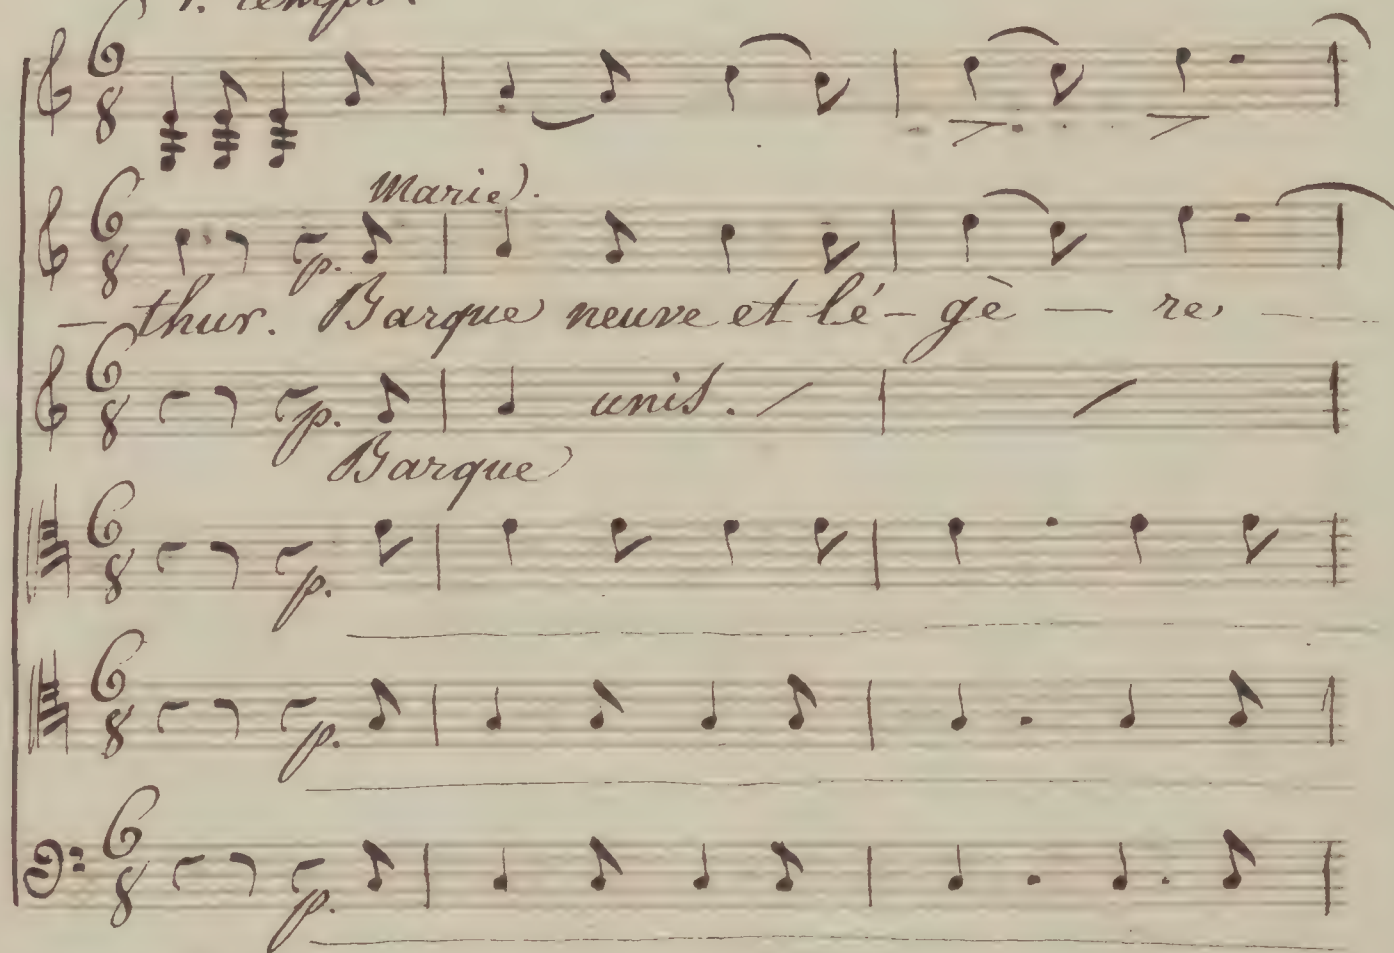 1. tempo
Marie).
– thur. Barque neuve et lé – gè — re
unis.
Barque